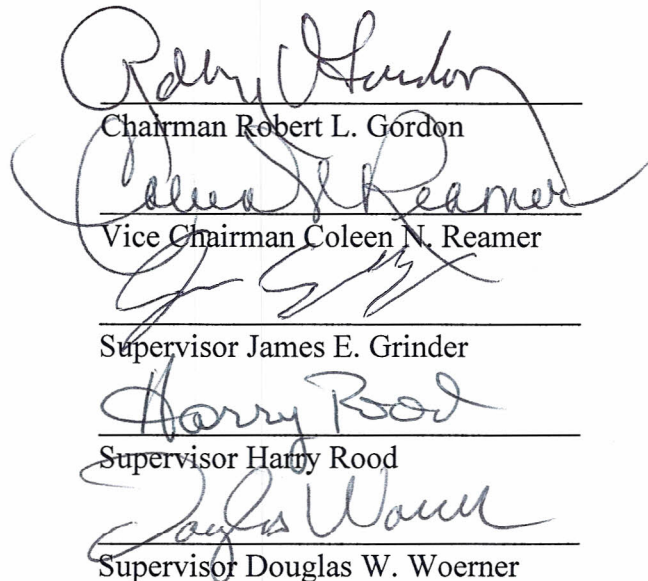 Chairman Robert L. Gordon
Coleen N Reamer
Vice Chairman Coleen N. Reamer
Supervisor James E. Grinder
Harry Rood
Supervisor Harry Rood
Douglas Woerner
Supervisor Douglas W. Woerner